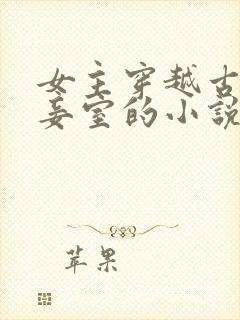 女主穿越古
妾室的小說
苹果